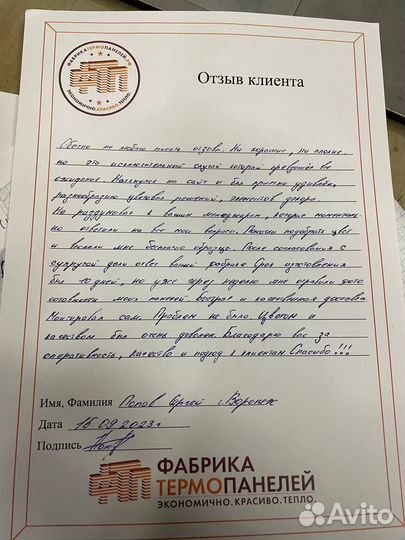 ФАБРИКАТЕРМОПАНЕЛЕЙ.РФ
ФТП
ЭКОНОМИЧНО.КРАСИВО.ТЕПЛО.
Отзыв клиента
Обычно не люблю писать отзывы. Ни хорошие, ни плохие.
но это исключительный случай который превзошёл все
ожидания. Наткнулся на сайт и был приятно удивлен,
разнообразию цветовых решений, элементов декора.
Не раздумывал к вашим менеджерам, которые моментально
но ответили на все мои вопросы. Помогли подобрать цвет
и выслали мне бесплатно образцы. После согласования с
супругой дали ответ вашей фабрике. Срок изготовления
был 10 дней, но уже через неделю мне
моих панелей и качественная доставка
Монтировал сам. Проблем не было. Цветом и
качеством был очень доволен. Благодарю вас за
оперативность, качество и подход к клиентам Спасибо!!!
Имя, Фамилия Попов Сергей г. Воронеж
Дата 15.09.2023г.
Подпись
ФТП ФАБРИКА
ТЕРМОПАНЕЛЕЙ
ЭКОНОМИЧНО.КРАСИВО.ТЕПЛО.
Avito